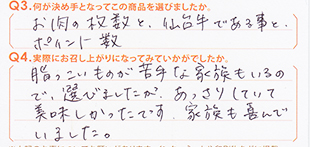 Q3.何が決め手となってこの商品を選びましたか。
お肉の枚数と、仙台牛である事と、
ポイント数
Q4.実際にお召し上がりになってみていかがでしたか。
脂っこいものが苦手な家族もいるの
で、選びましたが、あっさりしていて
美味しかったです。家族も喜んで
いました。